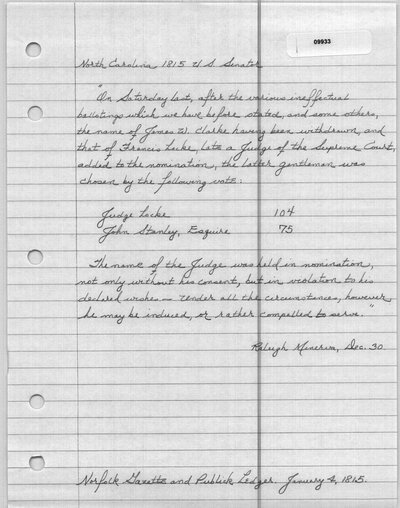 09933
North Carolina 1815 U.S. Senator
"On Saturday last, after the various ineffectual
ballotings which we have before stated, and some others,
the name of James W. Clarke having been withdrawn, and
that of Francis Locke, late a Judge of the Supreme Court,
added to the nomination, the latter gentleman was
chosen by the following vote:
Judge Locke 104
John Stanley, Esquire 75
The name of the Judge was held in nomination,
not only without his consent, but in violation to his
declared wishes — render all the circumstances, however,
he may be induced, or rather compelled to serve."
Raleigh Minerva, Dec. 30
Norfolk Gazette and Publick Ledger. January 4, 1815.